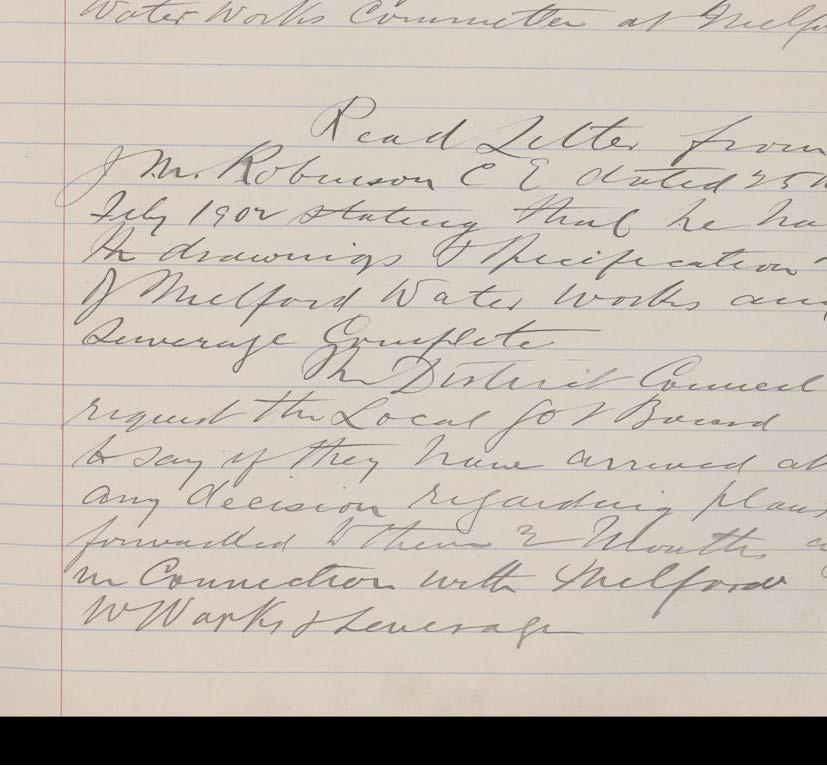 Water Works Committee at Melfo
Read Letter from
J M. Robinson C E dated 25th
Feby 1902 stating that he ha
the drawings & Specification
of Melford Water Works and
Sewerage Complete
The District Council
request the Local Govt Board
to say if they have arrived at
any decision regarding plans
forwarded to them 2 Months
in Connection with Melford
W Works & Sewerage